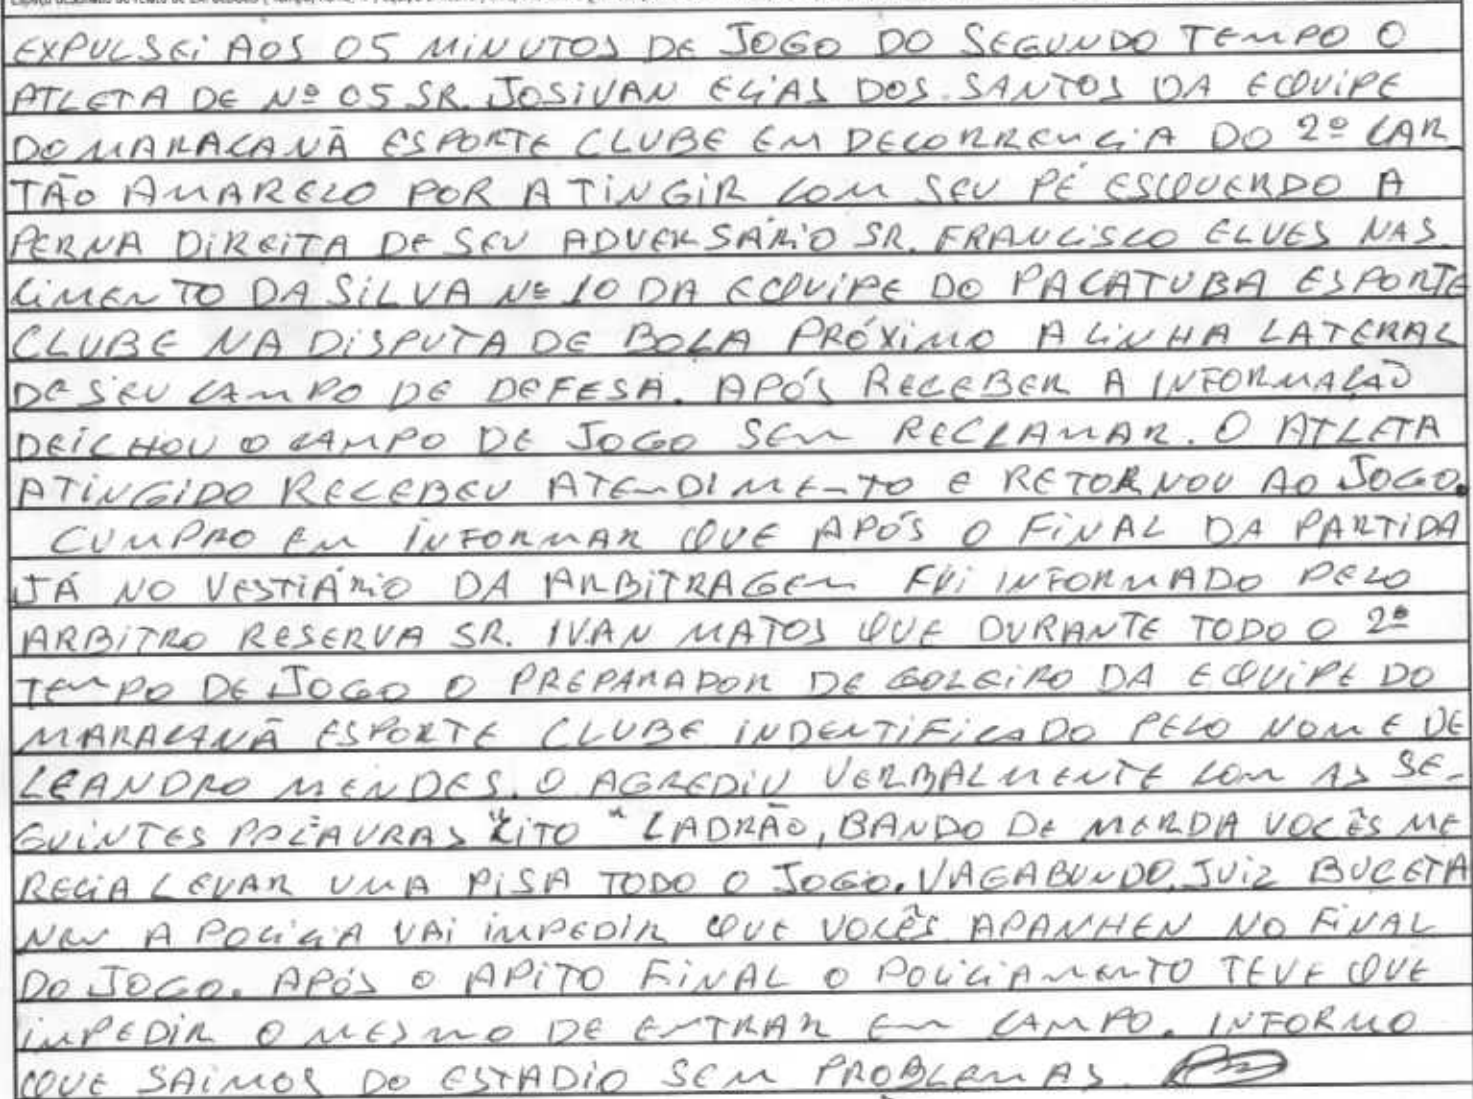 EXPULSEI AOS 05 MINUTOS DE JOGO DO SEGUNDO TEMPO O
ATLETA DE Nº 05 SR. JOSIVAN ELIAS DOS SANTOS DA EQUIPE
DO MARACANÃ ESPORTE CLUBE EM DECORRENCIA DO 2º CAR
TÃO AMARELO POR ATINGIR COM SEU PÉ ESQUERDO A
PERNA DIREITA DE SEU ADVERSÁRIO SR. FRANCISCO ELVES NAS
CIMENTO DA SILVA Nº 10 DA EQUIPE DO PACATUBA ESPORTE
CLUBE NA DISPUTA DE BOLA PRÓXIMO A LINHA LATERAL
DE SEU CAMPO DE DEFESA. APÓS RECEBER A INFORMAÇÃO
DEICHOU O CAMPO DE JOGO SEM RECLAMAR. O ATLETA
ATINGIDO RECEBEU ATENDIMENTO E RETORNOU AO JOGO.
CUMPRO EM INFORMAR QUE APÓS O FINAL DA PARTIDA
JÁ NO VESTIÁRIO DA ARBITRAGEM FUI INFORMADO PELO
ARBITRO RESERVA SR. IVAN MATOS QUE DURANTE TODO O 2º
TEMPO DE JOGO O PREPARADOR DE GOLEIRO DA EQUIPE DO
MARACANÃ ESPORTE CLUBE INDENTIFICADO PELO NOME DE
LEANDRO MENDES. O AGREDIU VERBALMENTE COM AS SE-
GUINTES PALAVRAS "CITO" LADRÃO, BANDO DE MERDA VOCÊS ME
RECIA LEVAR UMA PISA TODO O JOGO. VAGABUNDO. JUIZ BUCETA
NEM A POLICIA VAI IMPEDIR QUE VOCÊS APANHEN NO FINAL
DO JOGO. APÓS O APITO FINAL O POLICIAMENTO TEVE QUE
IMPEDIR O MESMO DE ENTRAR EM CAMPO. INFORMO
QUE SAIMOS DO ESTADIO SEM PROBLEMAS.